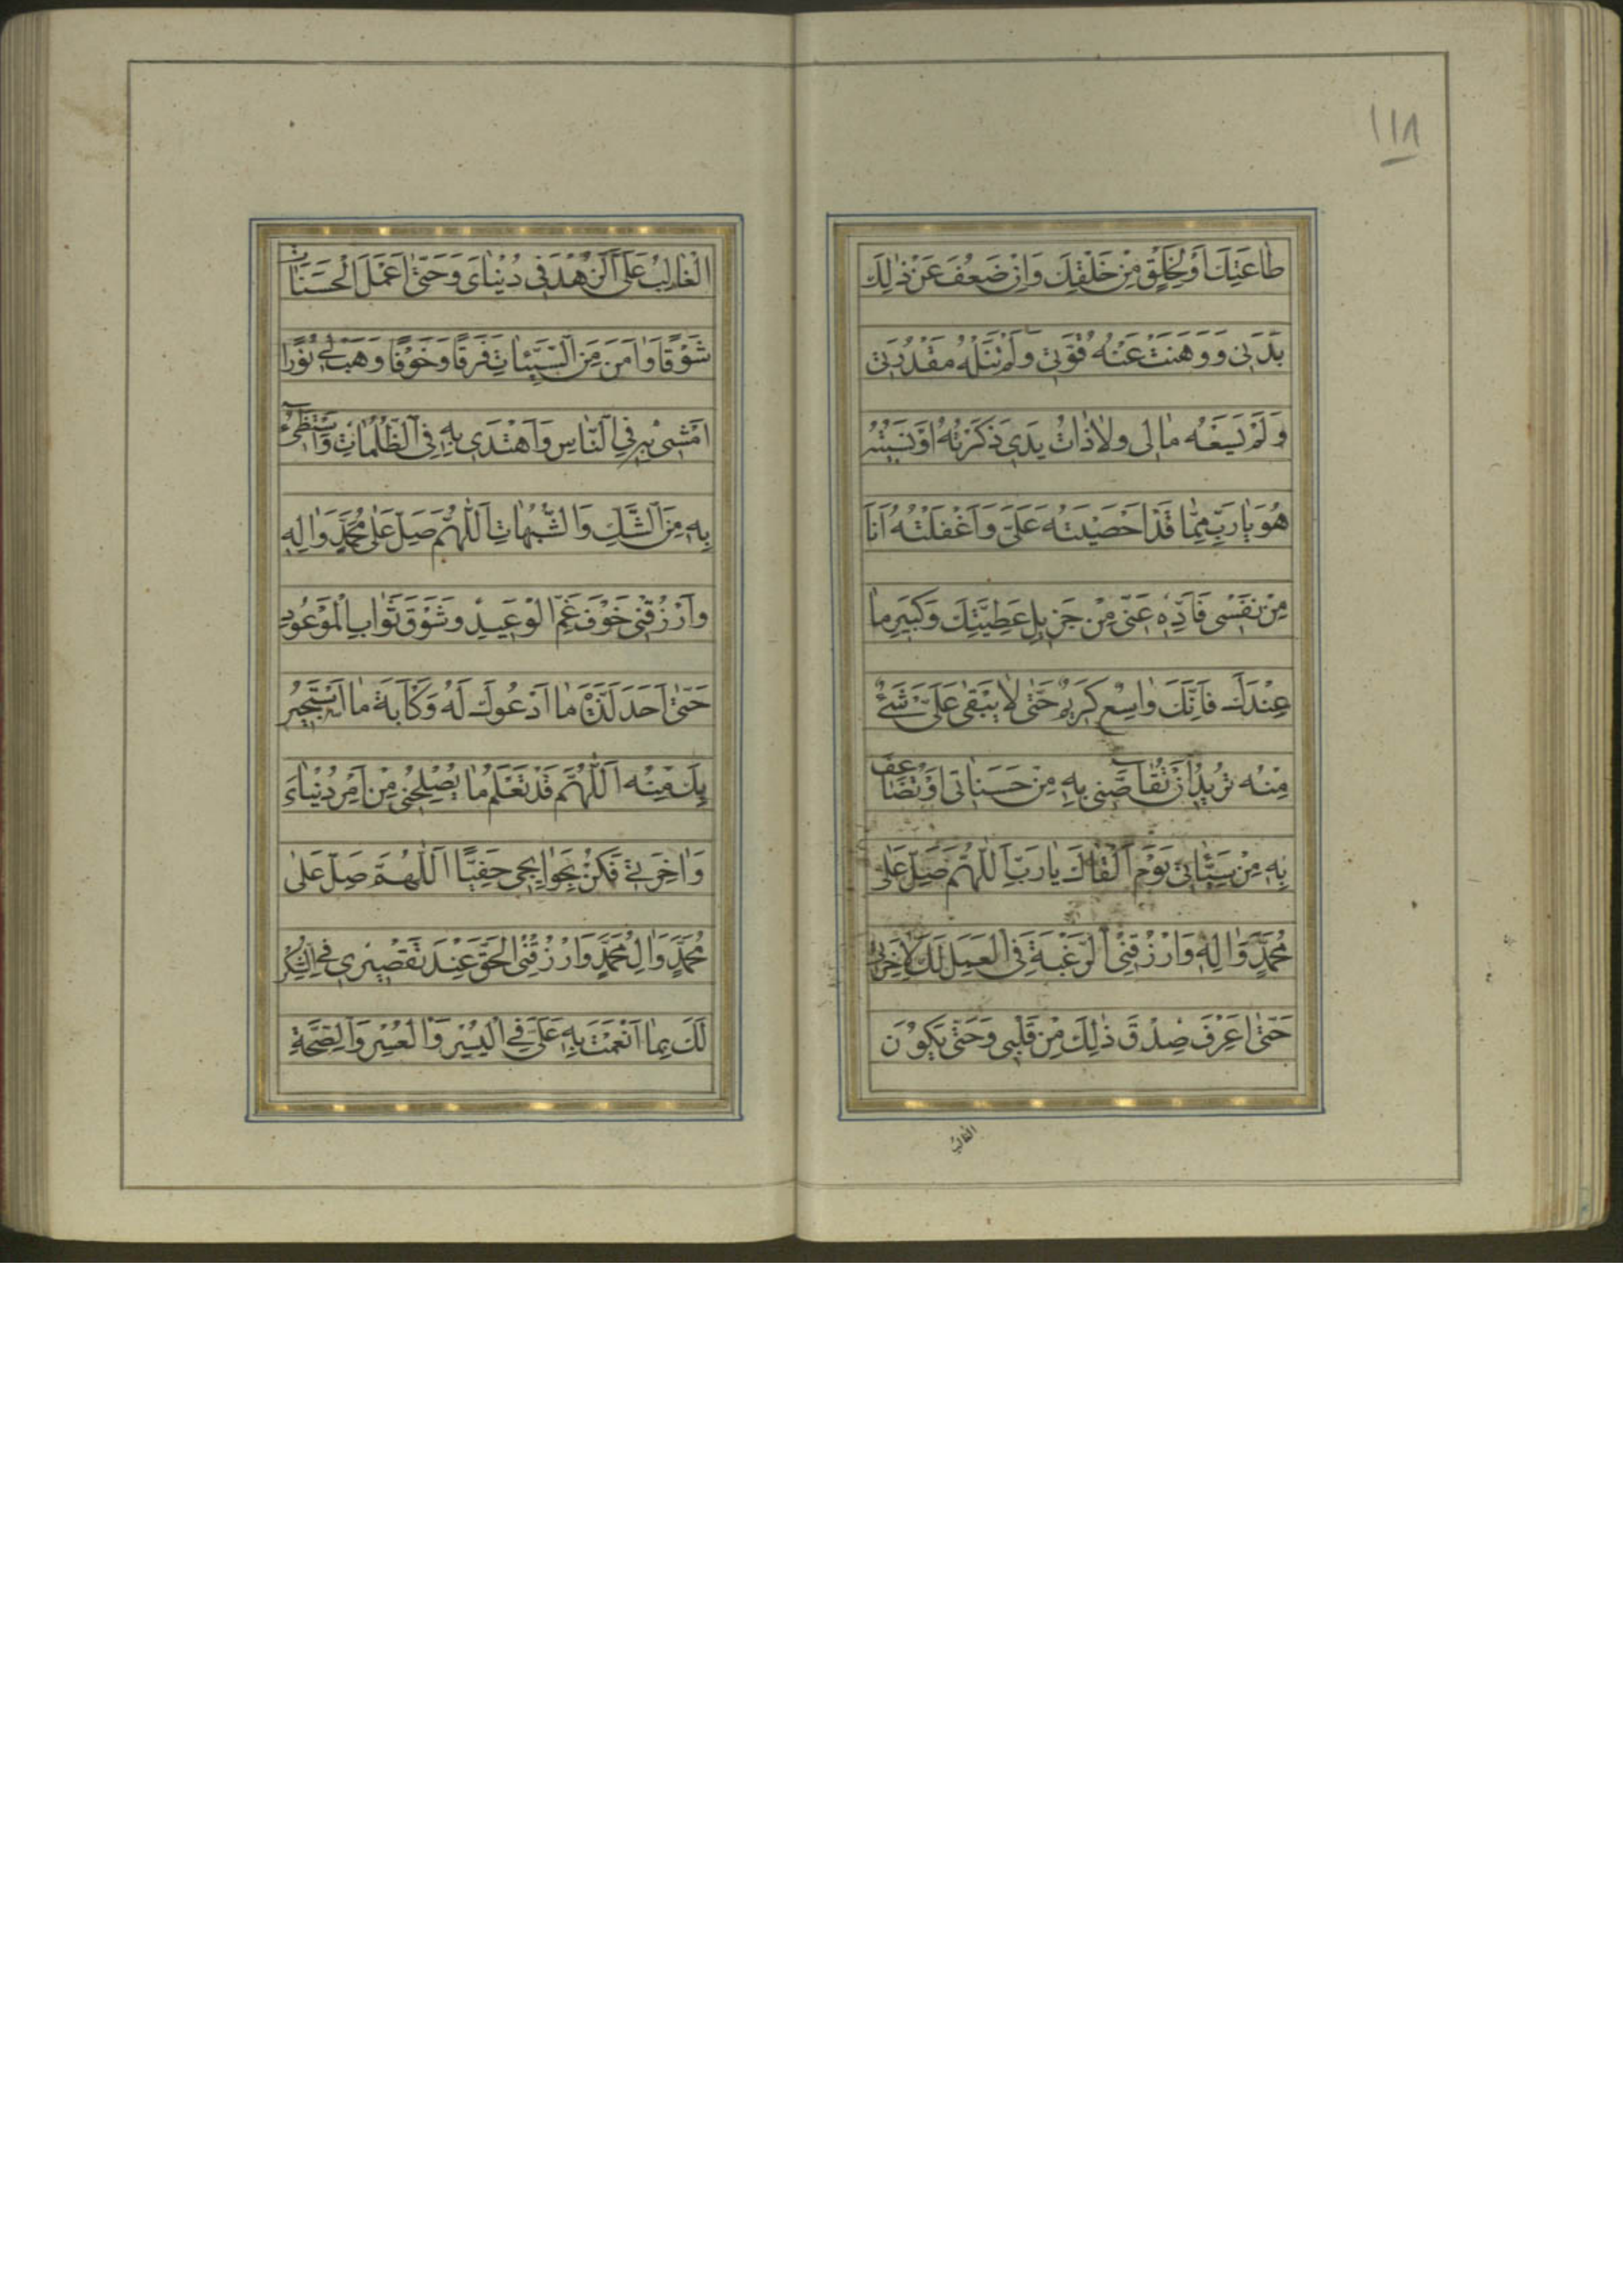 ١١٨
طاعَتِكَ اَوْ لِخَلْقٍ مِنْ خَلْقِكَ وَاِنْ ضَعُفَ عَنْ ذٰلِكَ
بَدَنی وَ وَهَنَتْ عَنْهُ قُوَّتی وَلَمْ تَنَلْهُ مَقْدُرَتی
وَلَمْ يَسَعْهُ مالی وَلاذاتُ يَدی ذَكَرْتُهُ اَوْ نَسيتُهُ
هُوَ يارَبِّ مِمّا قَدْ اَحْصَيْتَهُ عَلَیَّ وَاَغْفَلْتُهُ اَنَا
مِنْ نَفْسی فَاَدِّهِ عَنّی مِنْ جَزيلِ عَطِيَّتِكَ وَكَبيرِ ما
عِنْدَكَ فَاِنَّكَ واسِعٌ كَريمٌ حَتّٰی لايَبْقٰی عَلَیَّ شَیْءٌ
مِنْهُ تُريدُ اَنْ تُقاصَّنی بِهِ مِنْ حَسَناتی اَوْ تُضاعِفَ
بِهِ مِنْ سَيِّئاتی يَوْمَ اَلْقاكَ يارَبِّ اَللّٰهُمَّ صَلِّ عَلٰی
مُحَمَّدٍ وَاٰلِهِ وَارْزُقْنِی الرَّغْبَةَ فِی الْعَمَلِ لَكَ لِاٰخِرَتی
حَتّٰی اَعْرِفَ صِدْقَ ذٰلِكَ مِنْ قَلْبی وَحَتّٰی يَكُوْنَ
الْغالِبُ
الْغالِبُ عَلَیَّ الزُّهْدَ فی دُنْيایَ وَحَتّٰی اَعْمَلَ الْحَسَناتِ
شَوْقًا وَاٰمَنَ مِنَ السَّيِّئاتِ فَرَقًا وَخَوْفًا وَهَبْ لی نُوْرًا
اَمْشی بِهِ فِی النّاسِ وَاَهْتَدی بِهِ فِی الظُّلُماتِ وَاَسْتَضیءُ
بِهِ مِنَ الشَّكِّ وَالشُّبُهاتِ اَللّٰهُمَّ صَلِّ عَلٰی مُحَمَّدٍ وَاٰلِهِ
وَارْزُقْنی خَوْفَ غَمِّ الْوَعيدِ وَشَوْقَ ثَوابِ الْمَوْعُودِ
حَتّٰی اَجِدَ لَذَّةَ ما اَدْعُوكَ لَهُ وَكَاٰبَةَ ما اَسْتَجيرُ
بِكَ مِنْهُ اَللّٰهُمَّ قَدْ تَعْلَمُ ما يُصْلِحُنی مِنْ اَمْرِ دُنْيایَ
وَاٰخِرَتی فَكُنْ بِحَوائِجی حَفِيًّا اَللّٰهُمَّ صَلِّ عَلٰی
مُحَمَّدٍ وَاٰلِ مُحَمَّدٍ وَارْزُقْنِی الْحَقَّ عِنْدَ تَقْصيری فِی الشُّكْرِ
لَكَ بِما اَنْعَمْتَ بِهِ عَلَیَّ فِی الْيُسْرِ وَالْعُسْرِ وَالصِّحَّةِ